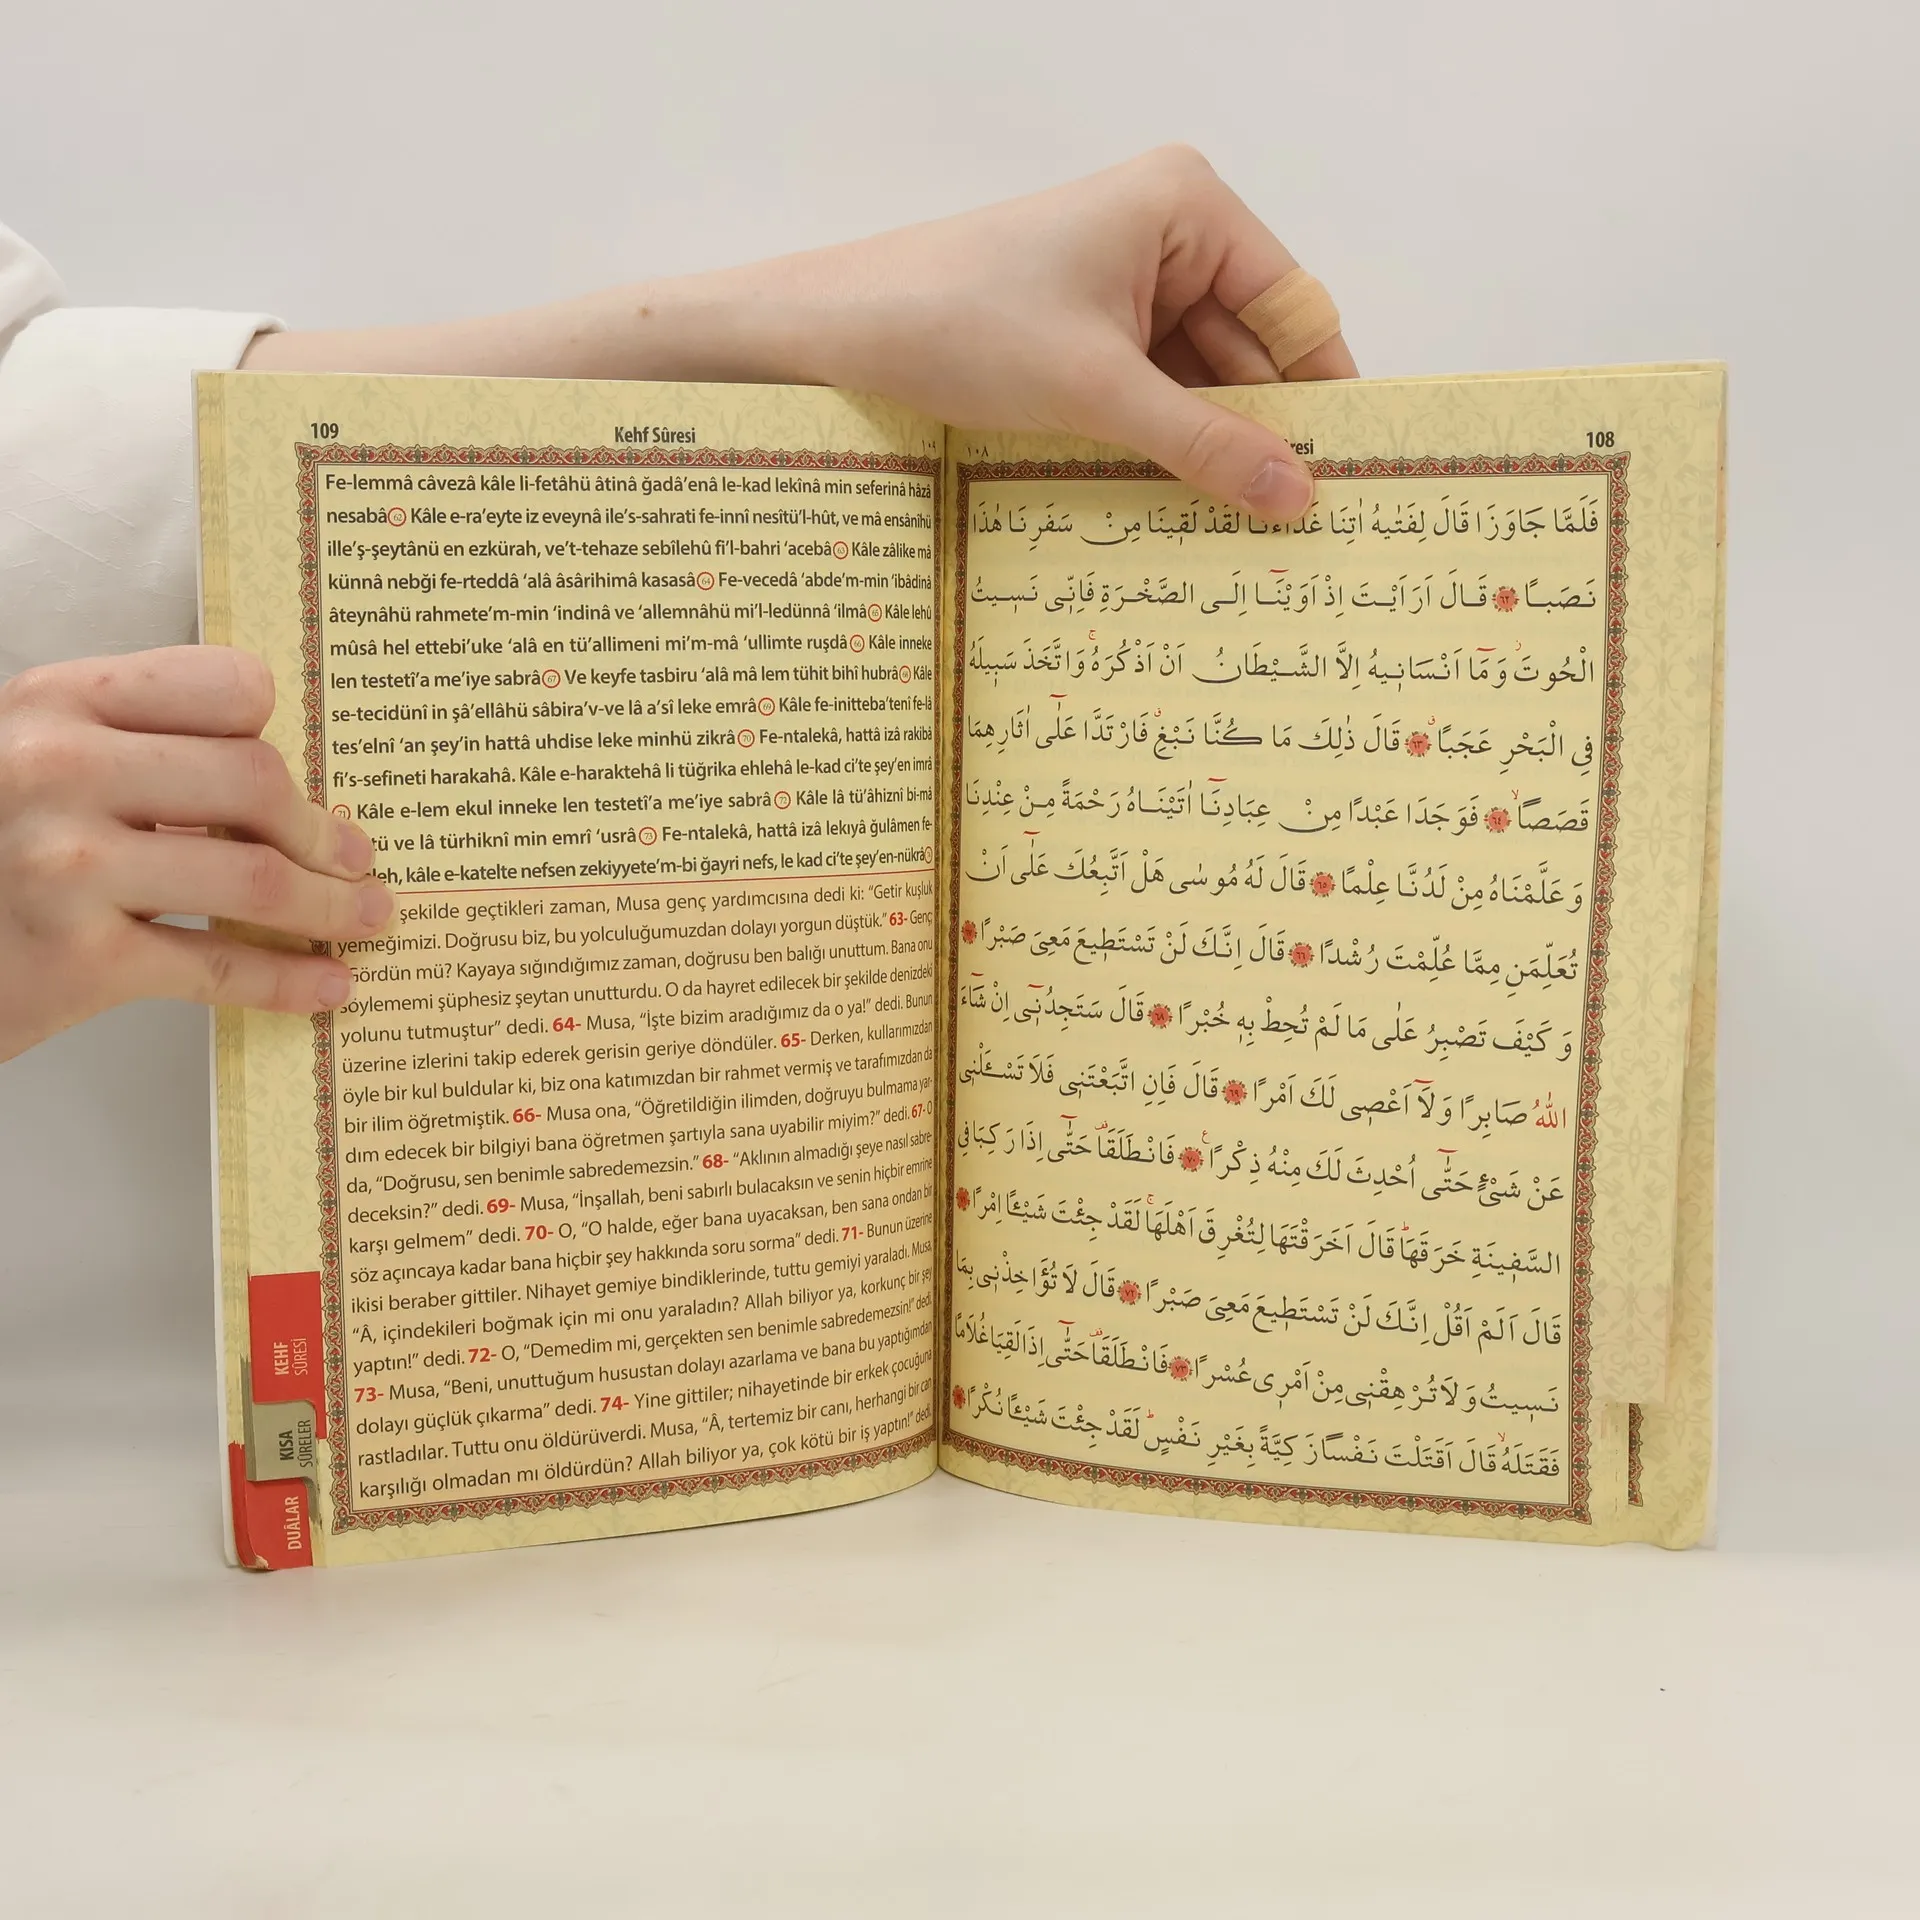 109
Kehf Sûresi
١٠٩
Fe-lemmâ câvezâ kâle li-fetâhü âtinâ ğadâ’enâ le-kad lekînâ min seferinâ hâzâ
nesabâ 62 Kâle e-ra’eyte iz eveynâ ile’s-sahrati fe-innî nesîtü’l-hût, ve mâ ensânîhü
ille’ş-şeytânü en ezkürah, ve’t-tehaze sebîlehû fi’l-bahri ‘acebâ 63 Kâle zâlike mâ
künnâ nebği fe-rteddâ ‘alâ âsârihimâ kasasâ 64 Fe-vecedâ ‘abde’m-min ‘ibâdinâ
âteynâhü rahmete’m-min ‘indinâ ve ‘allemnâhü mi’l-ledünnâ ‘ilmâ 65 Kâle lehû
mûsâ hel ettebi’uke ‘alâ en tü’allimeni mi’m-mâ ‘ullimte ruşdâ 66 Kâle inneke
len testetî’a me’iye sabrâ 67 Ve keyfe tasbiru ‘alâ mâ lem tühit bihî hubrâ 68 Kâle
se-tecidünî in şâ’ellâhü sâbira’v-ve lâ a’sî leke emrâ 69 Kâle fe-initteba’tenî fe-lâ
tes’elnî ‘an şey’in hattâ uhdise leke minhü zikrâ 70 Fe-ntalekâ, hattâ izâ rakibâ
fi’s-sefineti harakahâ. Kâle e-haraktehâ li tüğrika ehlehâ le-kad ci’te şey’en imrâ
71 Kâle e-lem ekul inneke len testetî’a me’iye sabrâ 72 Kâle lâ tü’âhiznî bi-mâ
tü ve lâ türhiknî min emrî ‘usrâ 73 Fe-ntalekâ, hattâ izâ lekıyâ ğulâmen fe-
leh, kâle e-katelte nefsen zekiyyete’m-bi ğayri nefs, le kad ci’te şey’en-nükrâ
şekilde geçtikleri zaman, Musa genç yardımcısına dedi ki: “Getir kuşluk
yemeğimizi. Doğrusu biz, bu yolculuğumuzdan dolayı yorgun düştük.” 63- Genç
Gördün mü? Kayaya sığındığımız zaman, doğrusu ben balığı unuttum. Bana onu
söylememi şüphesiz şeytan unutturdu. O da hayret edilecek bir şekilde denizdeki
yolunu tutmuştur” dedi. 64- Musa, “İşte bizim aradığımız da o ya!” dedi. Bunun
üzerine izlerini takip ederek gerisin geriye döndüler. 65- Derken, kullarımızdan
öyle bir kul buldular ki, biz ona katımızdan bir rahmet vermiş ve tarafımızdan da
bir ilim öğretmiştik. 66- Musa ona, “Öğretildiğin ilimden, doğruyu bulmama yar-
dım edecek bir bilgiyi bana öğretmen şartıyla sana uyabilir miyim?” dedi. 67- O
da, “Doğrusu, sen benimle sabredemezsin.” 68- “Aklının almadığı şeye nasıl sabre-
deceksin?” dedi. 69- Musa, “İnşallah, beni sabırlı bulacaksın ve senin hiçbir emrine
karşı gelmem” dedi. 70- O, “O halde, eğer bana uyacaksan, ben sana ondan bir
söz açıncaya kadar bana hiçbir şey hakkında soru sorma” dedi. 71- Bunun üzerine
ikisi beraber gittiler. Nihayet gemiye bindiklerinde, tuttu gemiyi yaraladı. Musa,
“Â, içindekileri boğmak için mi onu yaraladın? Allah biliyor ya, korkunç bir şey
yaptın!” dedi. 72- O, “Demedim mi, gerçekten sen benimle sabredemezsin!” dedi.
73- Musa, “Beni, unuttuğum husustan dolayı azarlama ve bana bu yaptığımdan
dolayı güçlük çıkarma” dedi. 74- Yine gittiler; nihayetinde bir erkek çocuğuna
rastladılar. Tuttu onu öldürüverdi. Musa, “Â, tertemiz bir canı, herhangi bir can
karşılığı olmadan mı öldürdün? Allah biliyor ya, çok kötü bir iş yaptın!” dedi.
KEHF
SÛRESİ
KISA
SÛRELER
DUÂLAR
١٠٨
resi
108
فَلَمَّا جَاوَزَا قَالَ لِفَتٰيهُ اٰتِنَا غَدَاءَنَا لَقَدْ لَقِينَا مِنْ سَفَرِنَا هٰذَا
نَصَبًا ٦٢ قَالَ اَرَاَيْتَ اِذْ اَوَيْنَٓا اِلَى الصَّخْرَةِ فَاِنّٖى نَسٖيتُ
الْحُوتَۘ وَمَٓا اَنْسَانٖيهُ اِلَّا الشَّيْطَانُ اَنْ اَذْكُرَهُۚ وَاتَّخَذَ سَبٖيلَهُ
فِي الْبَحْرِ عَجَبًا ٦٣ قَالَ ذٰلِكَ مَا كُنَّا نَبْغِۗ فَارْتَدَّا عَلٰٓى اٰثَارِهِمَا
قَصَصًاۙ ٦٤ فَوَجَدَا عَبْدًا مِنْ عِبَادِنَٓا اٰتَيْنَاهُ رَحْمَةً مِنْ عِنْدِنَا
وَعَلَّمْنَاهُ مِنْ لَدُنَّا عِلْمًا ٦٥ قَالَ لَهُ مُوسٰى هَلْ اَتَّبِعُكَ عَلٰٓى اَنْ
تُعَلِّمَنِ مِمَّا عُلِّمْتَ رُشْدًا ٦٦ قَالَ اِنَّكَ لَنْ تَسْتَطٖيعَ مَعِىَ صَبْرًا ٦٧
وَكَيْفَ تَصْبِرُ عَلٰى مَا لَمْ تُحِطْ بِهٖ خُبْرًا ٦٨ قَالَ سَتَجِدُنٖٓى اِنْ شَٓاءَ
اللّٰهُ صَابِرًا وَلَٓا اَعْصٖى لَكَ اَمْرًا ٦٩ قَالَ فَاِنِ اتَّبَعْتَنٖى فَلَا تَسْـَٔلْنٖى
عَنْ شَىْءٍ حَتّٰٓى اُحْدِثَ لَكَ مِنْهُ ذِكْرًاࣖ ٧٠ فَانْطَلَقَاۗ حَتّٰٓى اِذَا رَكِبَا فِي
السَّفٖينَةِ خَرَقَهَاؕ قَالَ اَخَرَقْتَهَا لِتُغْرِقَ اَهْلَهَاۚ لَقَدْ جِئْتَ شَيْـًٔا اِمْرًا ٧١
قَالَ اَلَمْ اَقُلْ اِنَّكَ لَنْ تَسْتَطٖيعَ مَعِىَ صَبْرًا ٧٢ قَالَ لَا تُؤَاخِذْنٖى بِمَا
نَسٖيتُ وَلَا تُرْهِقْنٖى مِنْ اَمْرٖى عُسْرًا ٧٣ فَانْطَلَقَاۗ حَتّٰٓى اِذَا لَقِيَا غُلَامًا
فَقَتَلَهُۙ قَالَ اَقَتَلْتَ نَفْسًا زَكِيَّةً بِغَيْرِ نَفْسٍؕ لَقَدْ جِئْتَ شَيْـًٔا نُكْرًا